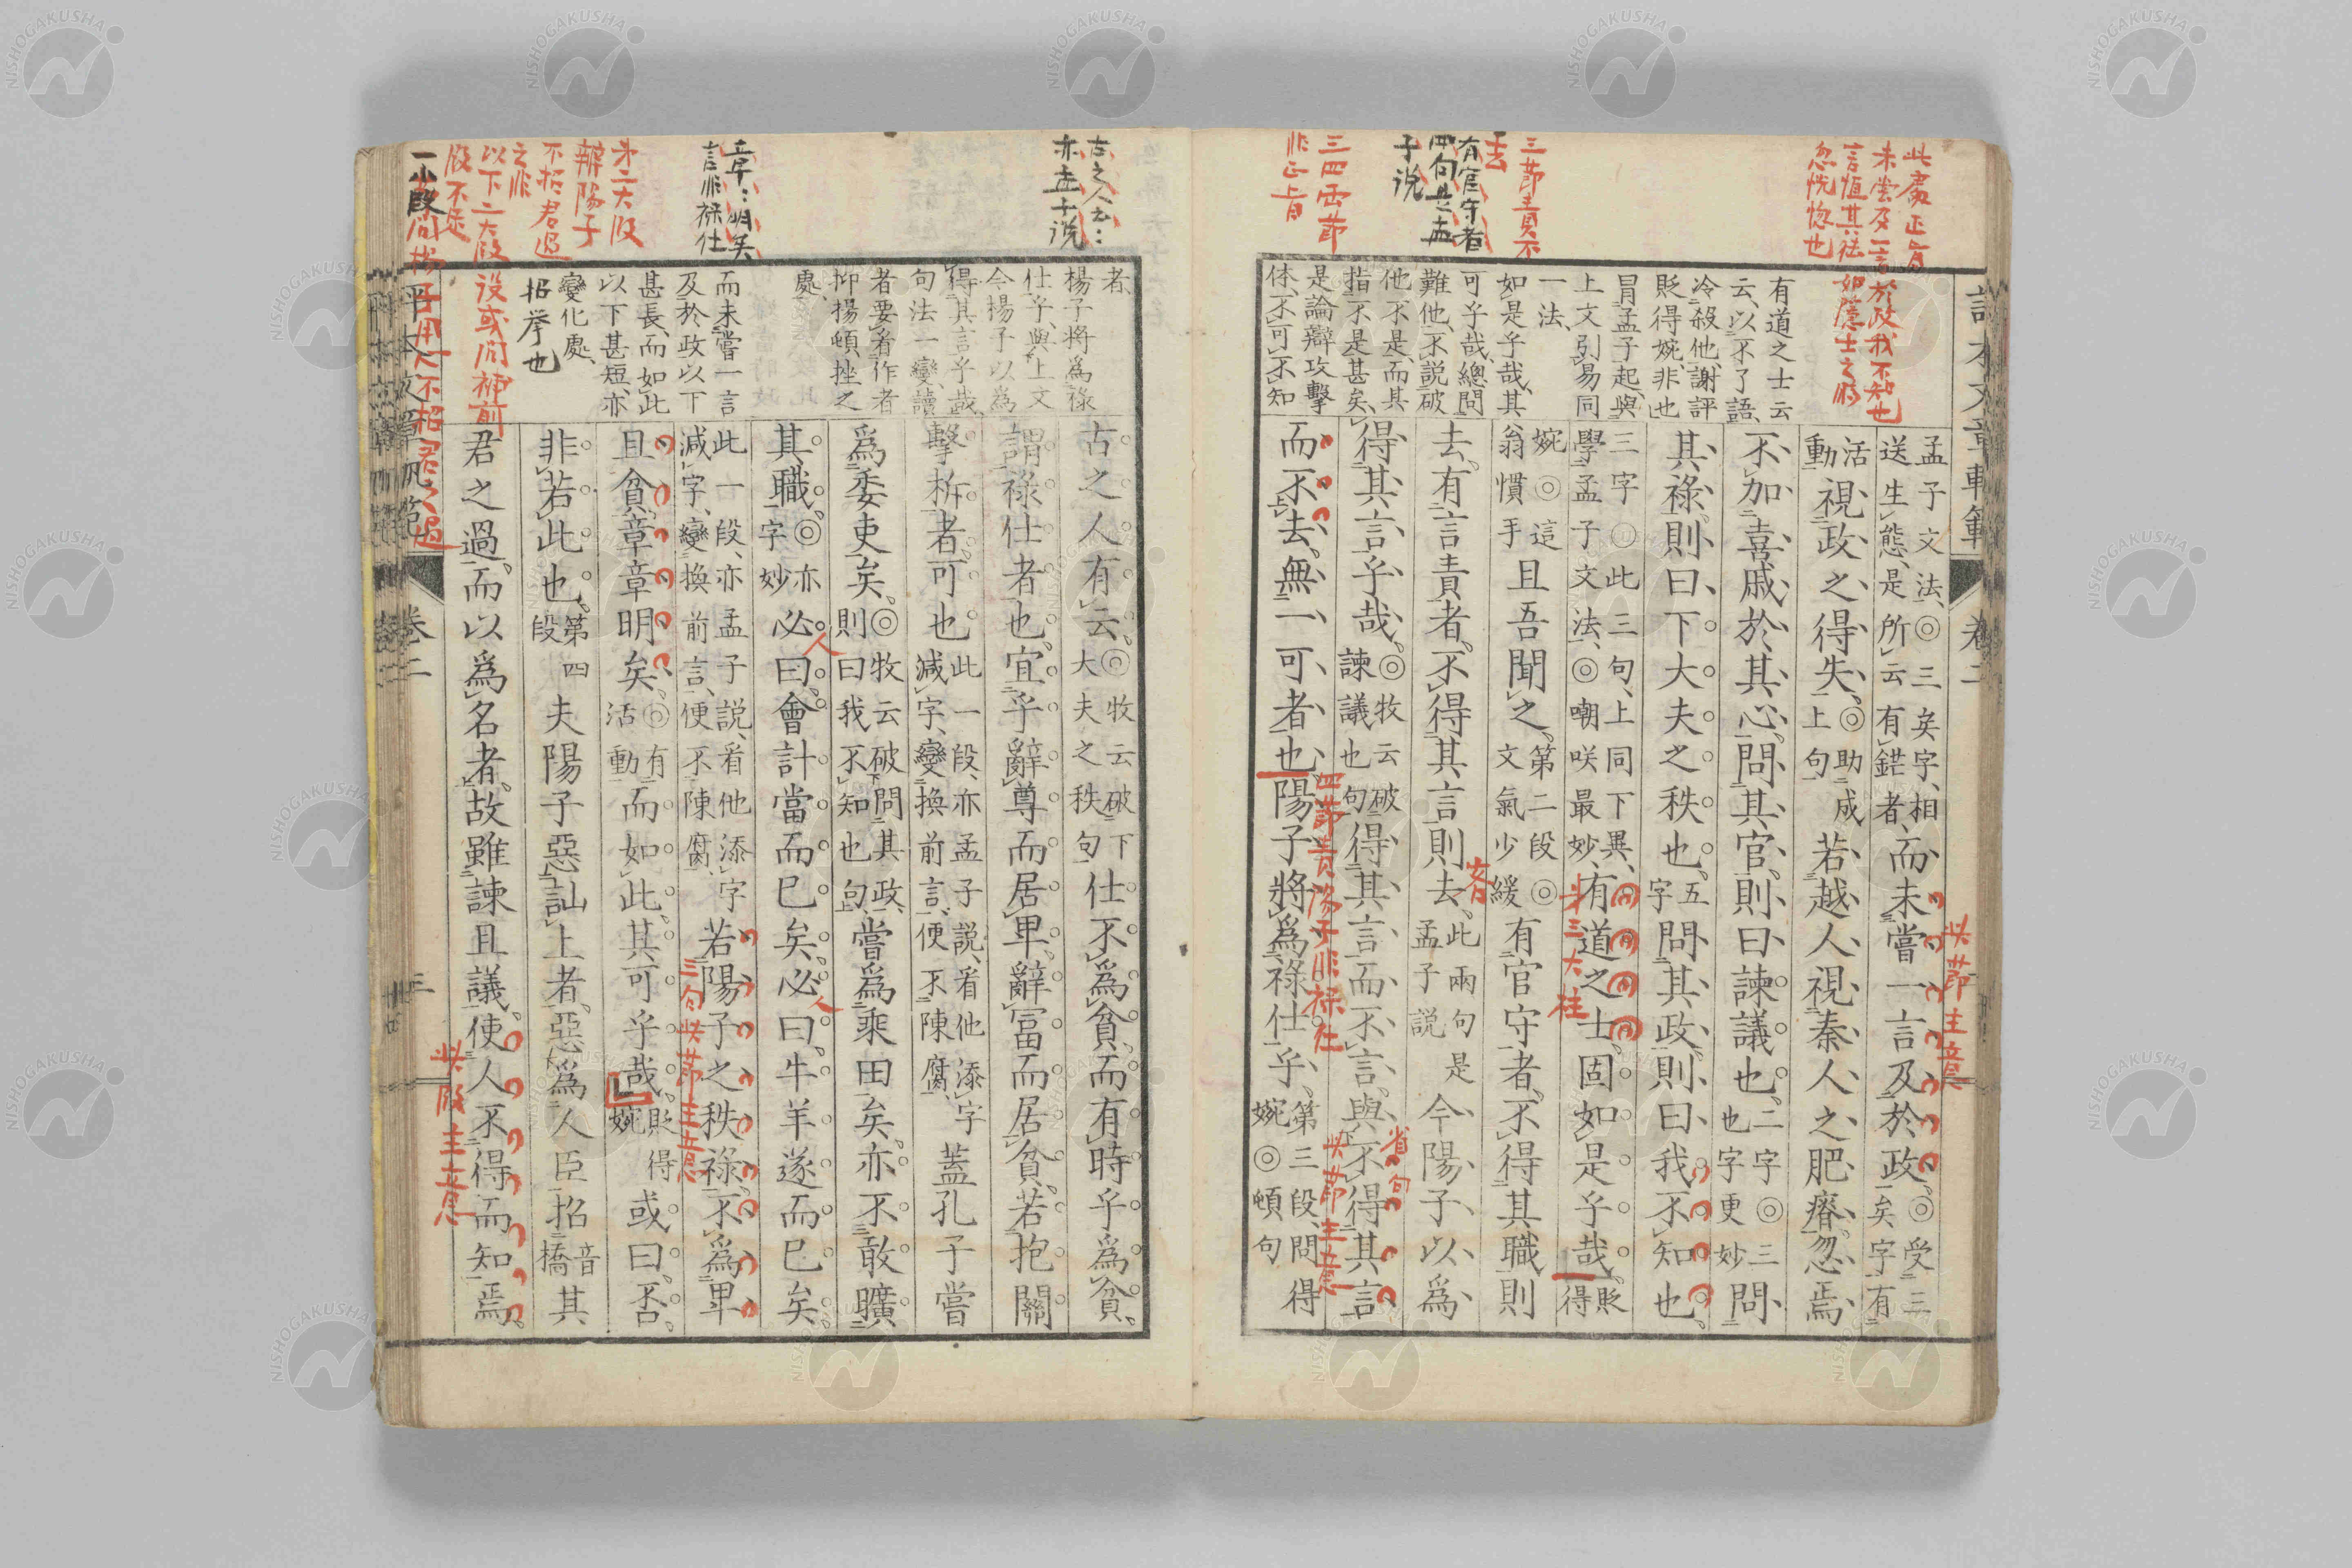 評本文章軌範 卷二
此處正旨
未嘗及一言於政我不知也
忽恍惚也
有道之士云
云、以不了語、
冷殺他、謝評
貶得婉、非也
冒孟子起、與
上文引易同
一法、
如是乎哉、其
可乎哉、總問
難他、不説破
他不是、而其
指不是甚矣、
是論辯攻擊
体、不可不知
三節責不
去
有官守者
四句是孟
子説
三四両節
非正旨
孟子文法、◎三矣字、相
送生態、是所云有錯者、
而未嘗一言及於政。◎受三
矣字有
活
動視政之得失、◎助成
上句若越人視秦人之肥瘠、忽焉
不加喜戚於其心、問其官、則曰諫議也、二字◎三
也字更妙問
其祿、則曰下大夫之秩也、五
字問其政、則曰我不知也。
三字◎此三句、上同下異、
學孟子文法、◎嘲咲最妙、有道之士固如是乎哉。貶
得
婉◎這
翁慣手且吾聞之。第二段◎
文氣少緩有官守者、不得其職則
去。有言責者。不得其言則去。此兩句是
孟子説今陽子以爲
得其言乎哉。◎牧云破
諫議也句得其言而不言、與不得其言
而不去、無一可者也。陽子將爲祿仕乎。第三段、問得
婉◎頓句
此節主意
第三大柱
客
省句
四節責陽子非祿仕
此節主意
古之人云
亦孟子説
章章明矣
言非祿仕
第二大段
辨陽子
不招君過
之非
以下二大段設或問補前
段不足
一小段
者、
楊子將爲祿
仕乎、與上文
今揚子以爲
得其言乎哉、
句法一變、讀
者要看作者
抑揚頓挫之
處、
而未嘗一言
及於政以下
甚長、而如此
以下甚短、亦
變化處、
招挙也
古之人有云。◎牧云破下
大夫之秩句仕不爲貧、而有時乎爲貧、
謂祿仕者也。宜乎辭尊而居卑、辭富而居貧、若抱關
擊柝者可也。此一段、亦孟子説、看他添字
減字、變換前言、便不陳腐、蓋孔子嘗
爲委吏矣。◎牧云破問其政、
則曰我不知也句、嘗爲乘田矣、亦不敢曠
其職。◎亦
字妙必曰會計當而已矣、必曰牛羊遂而已矣。
此一段、亦孟子説、看他添字
減字、變換前言、便不陳腐、若陽子之秩祿、不爲卑
且貧、章章明矣。◎有
活動而如此、其可乎哉。貶得
婉或曰、否。
非若此也。第四
段夫陽子惡訕上者、惡爲人臣招音
橋其
君之過、而以爲名者、故雖諫且議、使人不得而知焉。
人
人
三句此節主意
此段主意
卷二
三